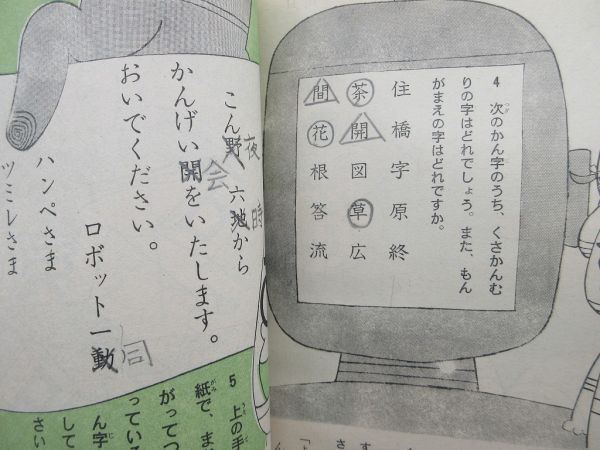 4 次のかん字のうち、くさかんむ
りの字はどれでしょう。また、もん
がまえの字はどれですか。
住橋字原終
茶開図草広
間花根答流
こん野夜 六地時から
かんげい開会をいたします。
おいでください。
ロボット一動同
ハンペさま
ツミレさま
5 上の手
紙で、ま
がってつ
っている
ん字
して
さい